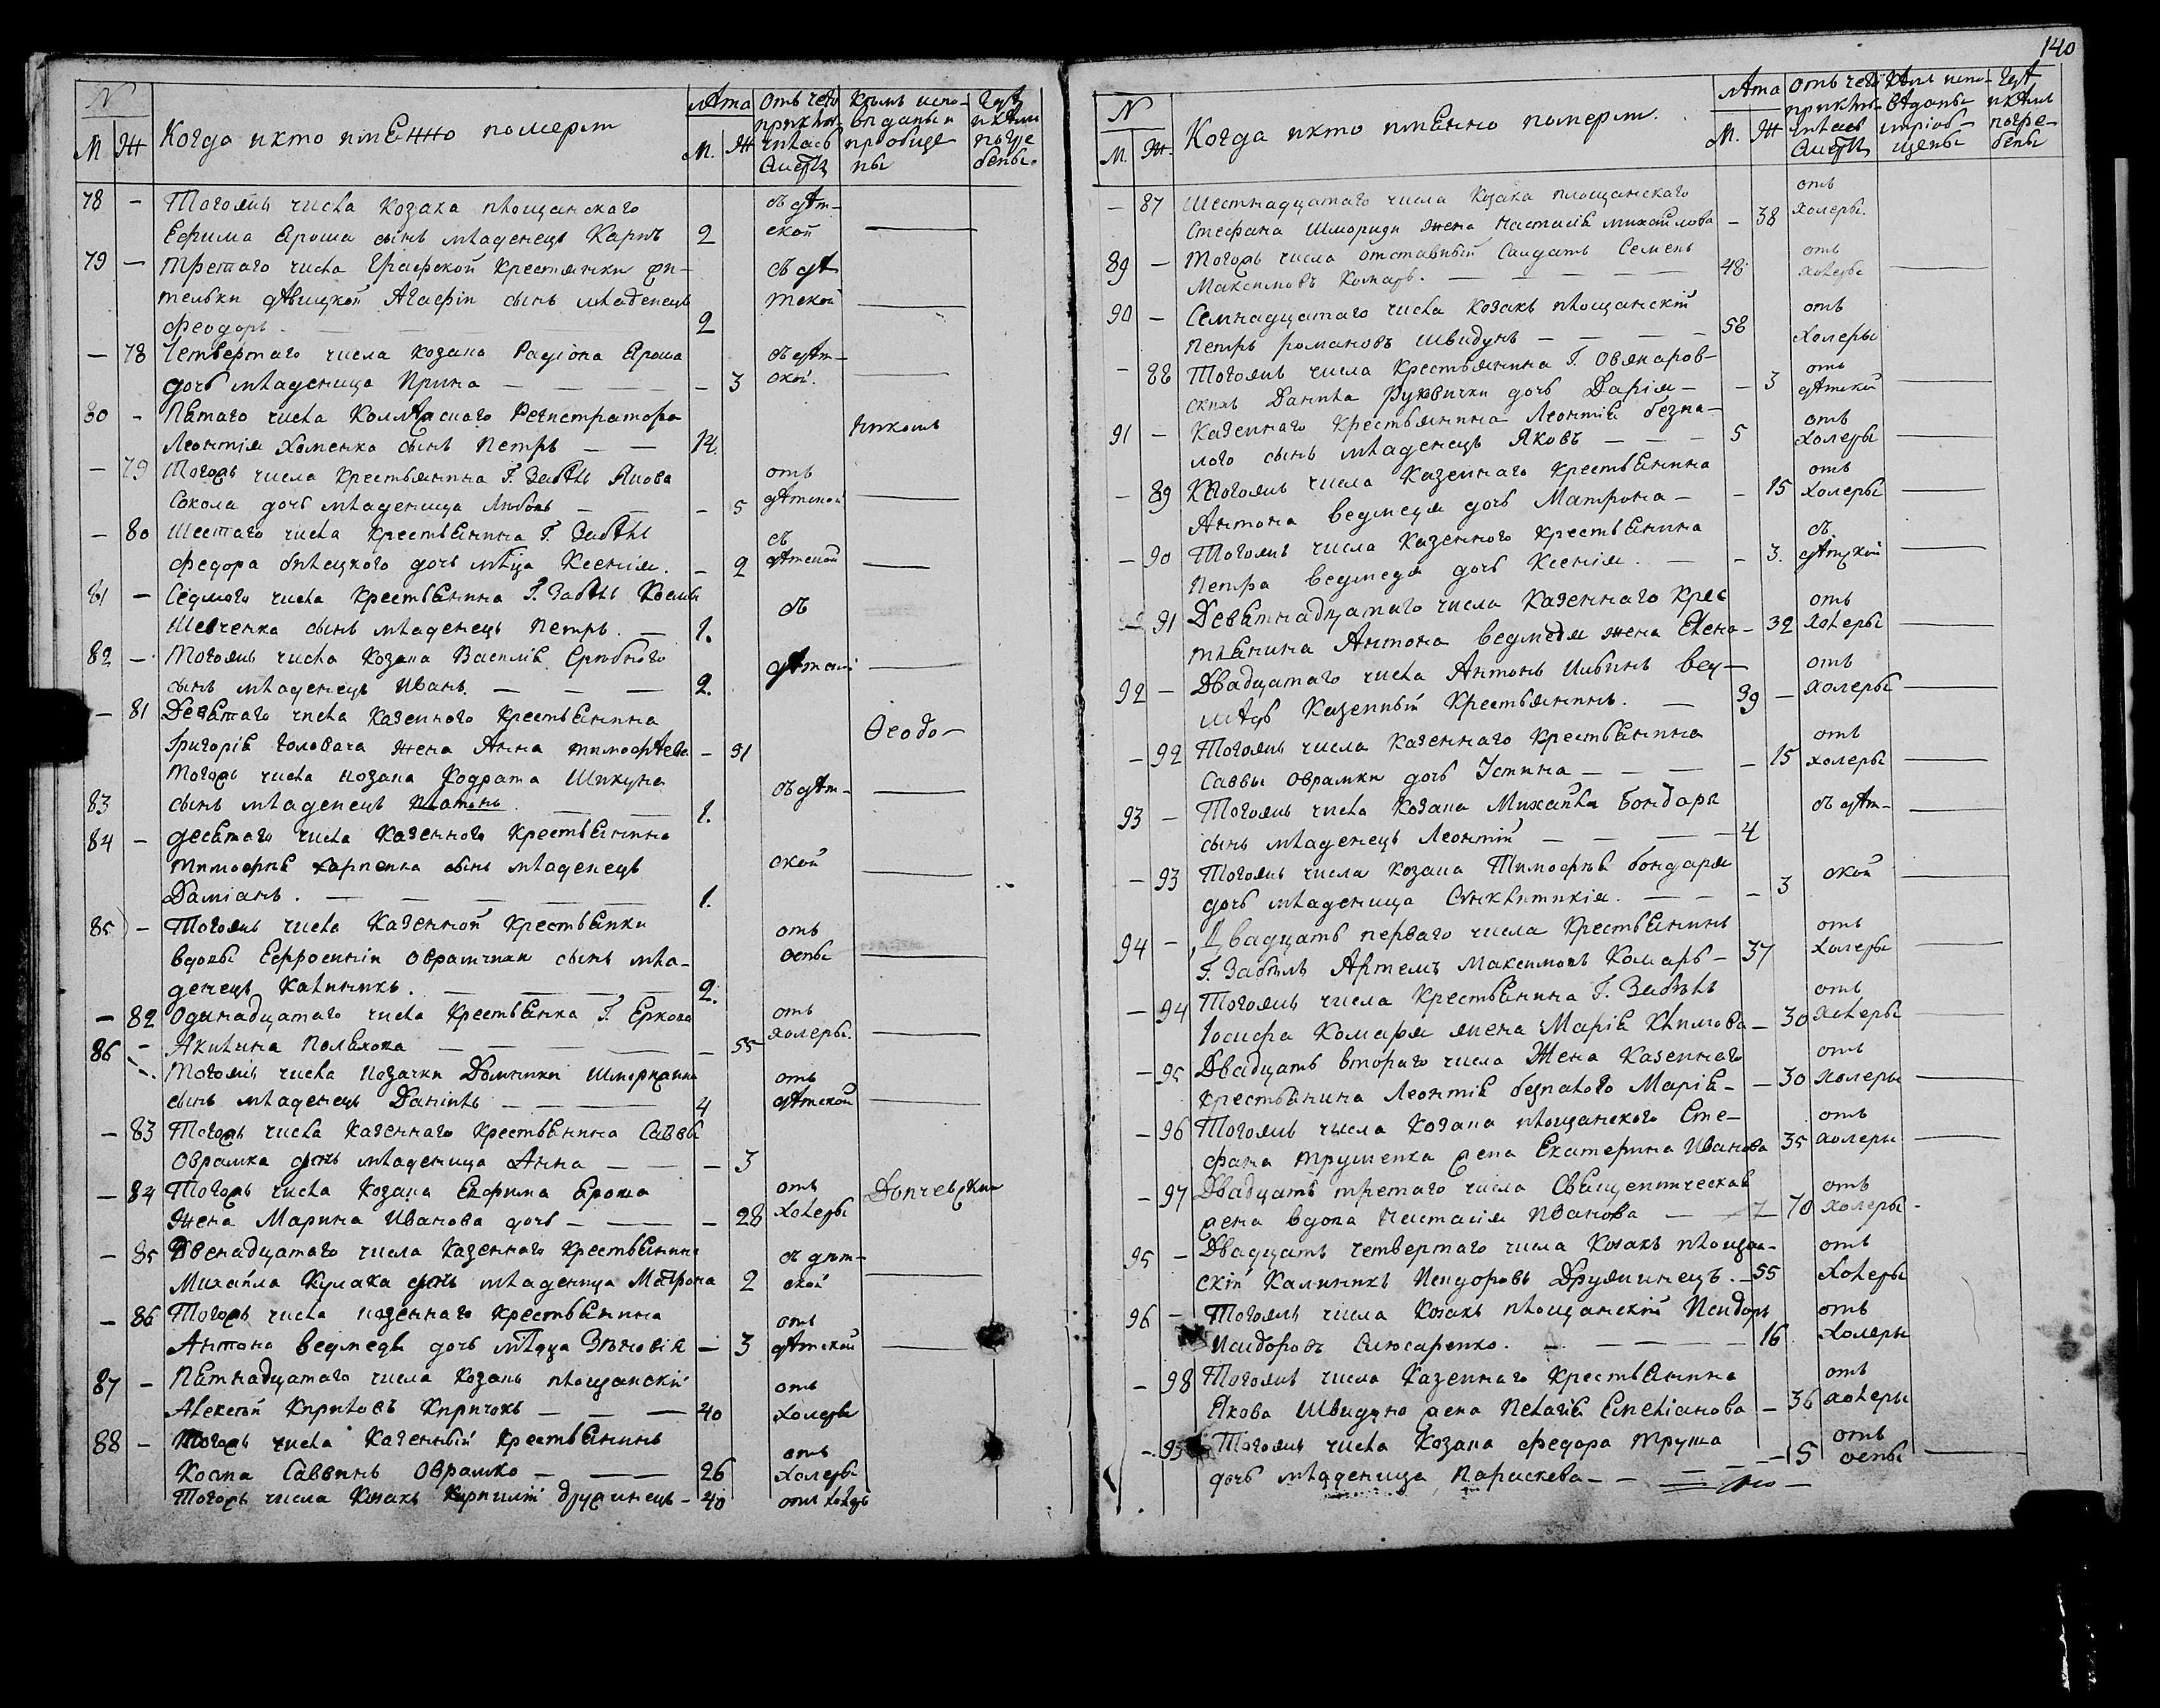 140
N
М Ж
Когда икто имѣнно померъ
лѣта
М. Ж
Отъ чего приключилась смерть
Кѣмъ исповѣданы и приобщены
Гдѣ и кѣмъ погребены.
78 – Тогожъ числа Козака площанскаго
Ефима Ероша сынъ младенецъ Карпъ 2 съ дѣтской
79 – Третаго числа Графской Крестянки
дѣвицкой Агафіи сынъ младенецъ
Феодоръ. 2
– 78 Четвертаго числа Козака Радіона Ероша
дочь младеница Ирина – – 3 съ дѣтской.
80 – Пятаго числа Регистратора
Леонтія Хоменка сынъ Петръ – 14.
– 79 Тогожъ числа Крестьянина Г. Забѣлы Якова
Сокола дочь младеница Любовь – – 5 отъ дѣтской
– 80 Шестаго числа Крестьянина Г. Забѣлы
Федора Бѣлецкого дочь Ксенія. – 2 съ дѣтской
81 – Седмого числа Крестьянина Г. Забѣлы Косми
Шевченка сынъ младенецъ Петръ. – 1. съ
82 – Тогожъ числа Козака Василія
сынъ младенецъ Иванъ. – – 2. дѣтской
– 81 Девятаго числа Казенного Крестьянина
Григорія Головача жена Анна Тимофѣева – 31 Ѳеодо–
Тогожъ числа козака Кодрата Шикуна
83 сынъ младенецъ Платонъ. 1. съ дѣт–
84 – десятаго числа Казенного Крестьянина
Тимофея Карпенка сынъ младенецъ ской
Даміанъ. – – – 1.
85 – Тогожъ числа Казенной Крестьянки
вдовы Ефросиніи Оврамчихи сынъ мла– отъ оспы
денецъ Калиникъ. – – – 2.
– 82 Одинадцатаго числа Крестьянка Г. Еркова отъ
Акилина Полѣхова – – – 55 холеры.
86 – Тогожъ числа козачки Домники
сынъ младенецъ Данилъ – – 4 отъ дѣтской
– 83 Тогожъ числа Казеннаго Крестьянина Саввы
Оврамка дочь младеница Анна – – – 3
– 84 Тогожъ числа Козака Ефрима Ероша отъ Дончевскій
Жена Марина Иванова дочь – – – 28 Холеры
– 85 Двенадцатаго числа Казеннаго Крестьянина съ дѣт–
Михайла Кулака дочь младеница Матрона 2 ской
– 86 Тогожъ числа казеннаго Крестьянина отъ
Антона Ведмедя дочь Зѣновія – 3 дѣтской
87 – Пятнадцатаго числа Козакъ площанскій отъ
Алексѣй Кириловъ Киричокъ – – 40 Холеры
88 – Тогожъ числа Казенный Крестьянинъ отъ
Косма Саввинъ Оврамко – – 26 Холеры
Тогожъ числа Козакъ Дружинецъ – 40 отъ холеры
N
М. Ж.
Когда икто имѣнно померъ.
лѣта
М. Ж
Отъ чего приключилась смерть
Кѣмъ исповѣданы и приобщены
Гдѣ и кѣмъ погребены
– 87 Шестнадцатаго числа Козака площанскаго отъ
Стефана Шмориди жена Настасія Михайлова – 38 Холеры.
89 – Тогожъ числа отставный Салдатъ Семенъ отъ
Максимовъ Комаръ. – – – 48 холеры
90 – Семнадцатаго числа козакъ площанскій отъ
Петръ Романовъ Швидунъ – – – 58 Холеры
– 88 Тогожъ числа Крестьянина Г. Овянаров– отъ
скихъ Данила дочь Дарія – – 3 дѣтской
91 – Казеннаго Крестьянина Леонтія Безпа– отъ
лого сынъ младенецъ Яковъ – – – 5 Холеры
– 89 Тогожъ числа Казеннаго Крестьянина отъ
Антона Ведмедя дочь Матрона – – 15 Холеры
– 90 Тогожъ числа Казенного Крестьянина съ
Петра Ведмедя дочь Ксенія. – – 3. дѣтской
– 91 Девятнадцатаго числа Казеннаго Крес отъ
тьянина Антона Ведмедя жена Елена – 32 Холеры
92 – Двадцатаго числа Антонъ Ильинъ Вед– отъ
мѣдь Казенный Крестьянинъ. – 39 – Холеры
– 92 Тогожъ числа Казеннаго Крестьянина отъ
Саввы Оврамки дочь Устина – – – 15 холеры
93 – Тогожъ числа Козака Михайла Бондаря съ дѣт–
сынъ младенецъ Леонтій – – – 4
– 93 Тогожъ числа Козака Тимофѣя Бондаря ской
дочь младеница Синклитикія. – – – 3
94 – Двадцать перваго числа Крестьянинъ отъ
Г. Забѣлы Артемъ Максимовъ Комаръ – 37 Холеры
– 94 Тогожъ числа Крестьянина Г. Забѣлы отъ
Іосифа Комаря жена Марія Климова – 30 Холеры
– 95 Двадцать втораго числа Жена Казеннаго отъ
Крестьянина Леонтія Безпалого Марія – – 30 Холеры
– 96 Тогожъ числа Козака площанского Сте– отъ
фана Трушенка жена Екатерина Иванова 35 холеры
– 97 Двадцать третаго числа Священическая отъ
жена вдова Настасія Иванова – – 70 Холеры
95 – Двадцать четвертаго числа Козакъ площан– отъ
скій Калиникъ Исидоровъ Дружинецъ. – 55 Холеры
96 – Тогожъ числа Козакъ площанскій Исидоръ отъ
Исидоровъ Слюсаренко. – – 16 Холеры
– 98 Тогожъ числа Казеннаго Крестьянина отъ
Якова Швидуно жена Пелагія Емеліанова – 36 холеры
– 99 Тогожъ числа Козака Федора Труша отъ
дочь младеница Параскева – – – 5 оспы